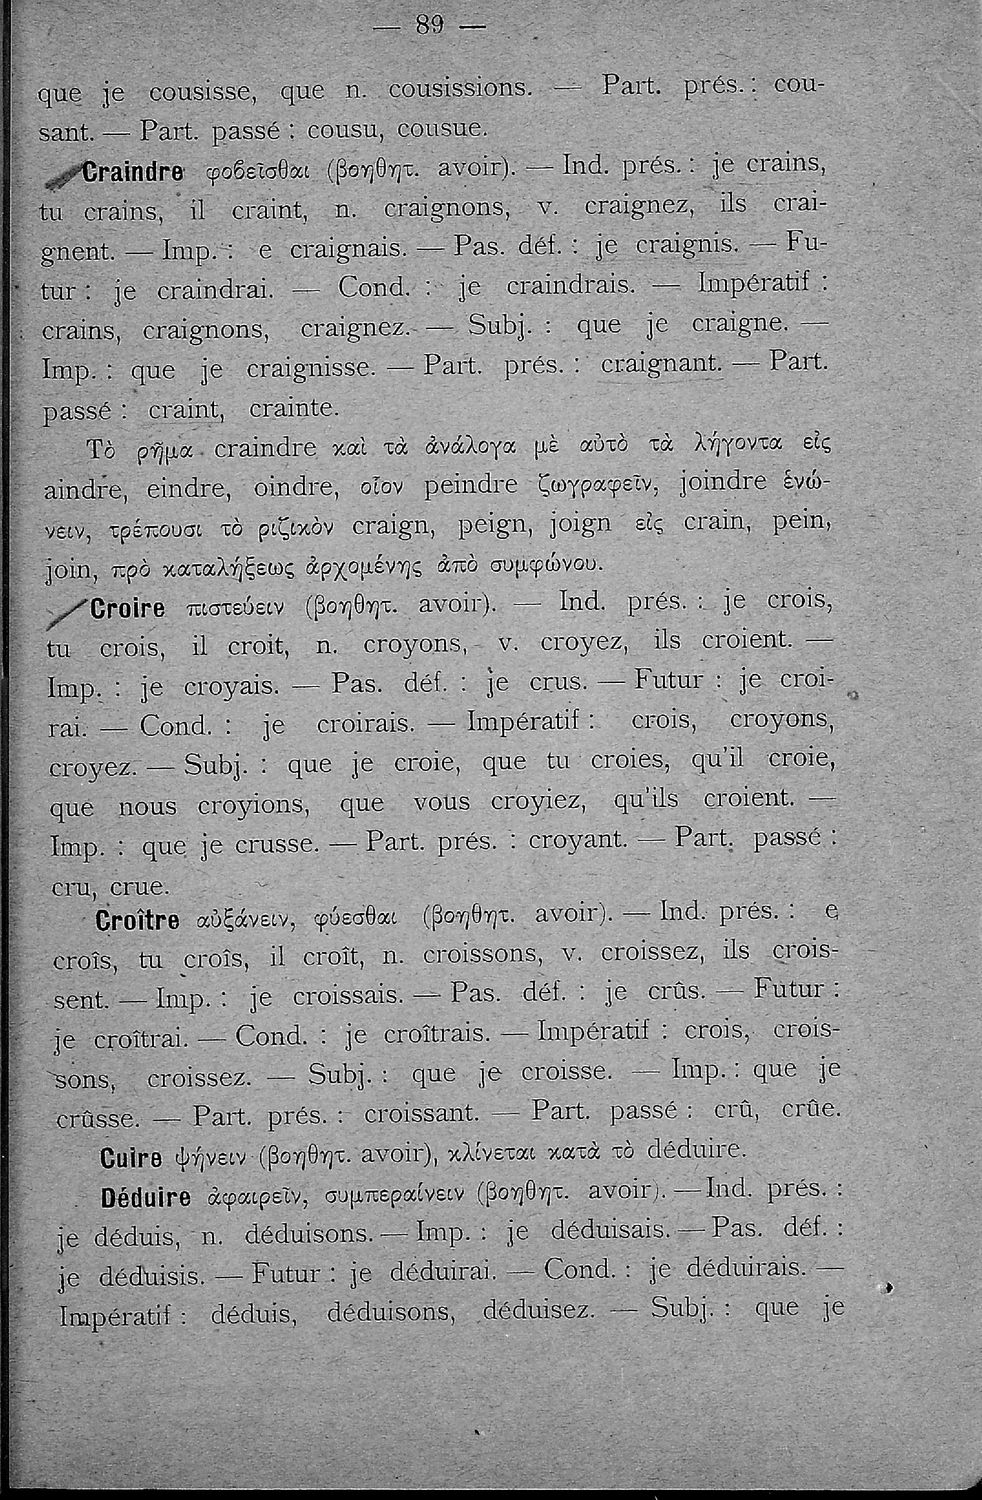 — 89 —
que je cousisse, que n. cousissions. — Part. prés. : cou-
sant. — Part. passé : cousu, cousue.
Craindre φοβεῖσθαι (βοηθητ. avoir). — Ind. prés. : je crains,
tu crains, il craint, n. craignons, v. craignez, ils crai-
gnent. — Imp. : e craignais. — Pas. déf. : je craignis. — Fu-
tur : je craindrai. — Cond. : je craindrais. — Impératif :
crains, craignons, craignez. — Subj. : que je craigne. —
Imp. : que je craignisse. — Part. prés. : craignant. — Part.
passé : craint, crainte.
Τὸ ρῆμα craindre καὶ τὰ ἀνάλογα μὲ αὐτὸ τὰ λήγοντα εἰς
aindre, eindre, oindre, οἷον peindre ζωγραφεῖν, joindre ἑνώ-
νειν, τρέπουσι τὸ ριζικὸν craign, peign, joign εἰς crain, pein,
join, πρὸ καταλήξεως ἀρχομένης ἀπὸ συμφώνου.
Croire πιστεύειν (βοηθητ. avoir). — Ind. prés. : je crois,
tu crois, il croit, n. croyons, v. croyez, ils croient. —
Imp. : je croyais. — Pas. déf. : je crus. — Futur : je croi-
rai. — Cond. : je croirais. — Impératif : crois, croyons,
croyez. — Subj. : que je croie, que tu croies, qu'il croie,
que nous croyions, que vous croyiez, qu'ils croient. —
Imp. : que je crusse. — Part. prés. : croyant. — Part. passé :
cru, crue.
Croître αὐξάνειν, φύεσθαι (βοηθητ. avoir). — Ind. prés. : e
croîs, tu croîs, il croît, n. croissons, v. croissez, ils crois-
sent. — Imp. : je croissais. — Pas. déf. : je crûs. — Futur :
je croîtrai. — Cond. : je croîtrais. — Impératif : crois, crois-
sons, croissez. — Subj. : que je croisse. — Imp. : que je
crûsse. — Part. prés. : croissant. — Part. passé : crû, crûe.
Cuire ψήνειν (βοηθητ. avoir), κλίνεται κατὰ τὸ déduire.
Déduire ἀφαιρεῖν, συμπεραίνειν (βοηθητ. avoir). — Ind. prés. :
je déduis, n. déduisons. — Imp. : je déduisais. — Pas. déf. :
je déduisis. — Futur : je déduirai. — Cond. : je déduirais. —
Impératif : déduis, déduisons, déduisez. — Subj. : que je